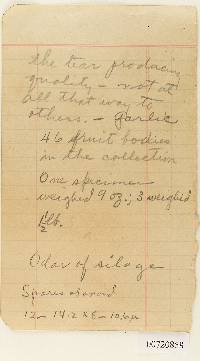 the tear producing
quality - not at
all that way to
others. - garlic
46 fruit bodies
in the collection
One specimen
weighed 9 oz.; 3 weighed
1/2 lb.
Odor of silage
Spores
12 - 14.2 x 8 - 10.6µ